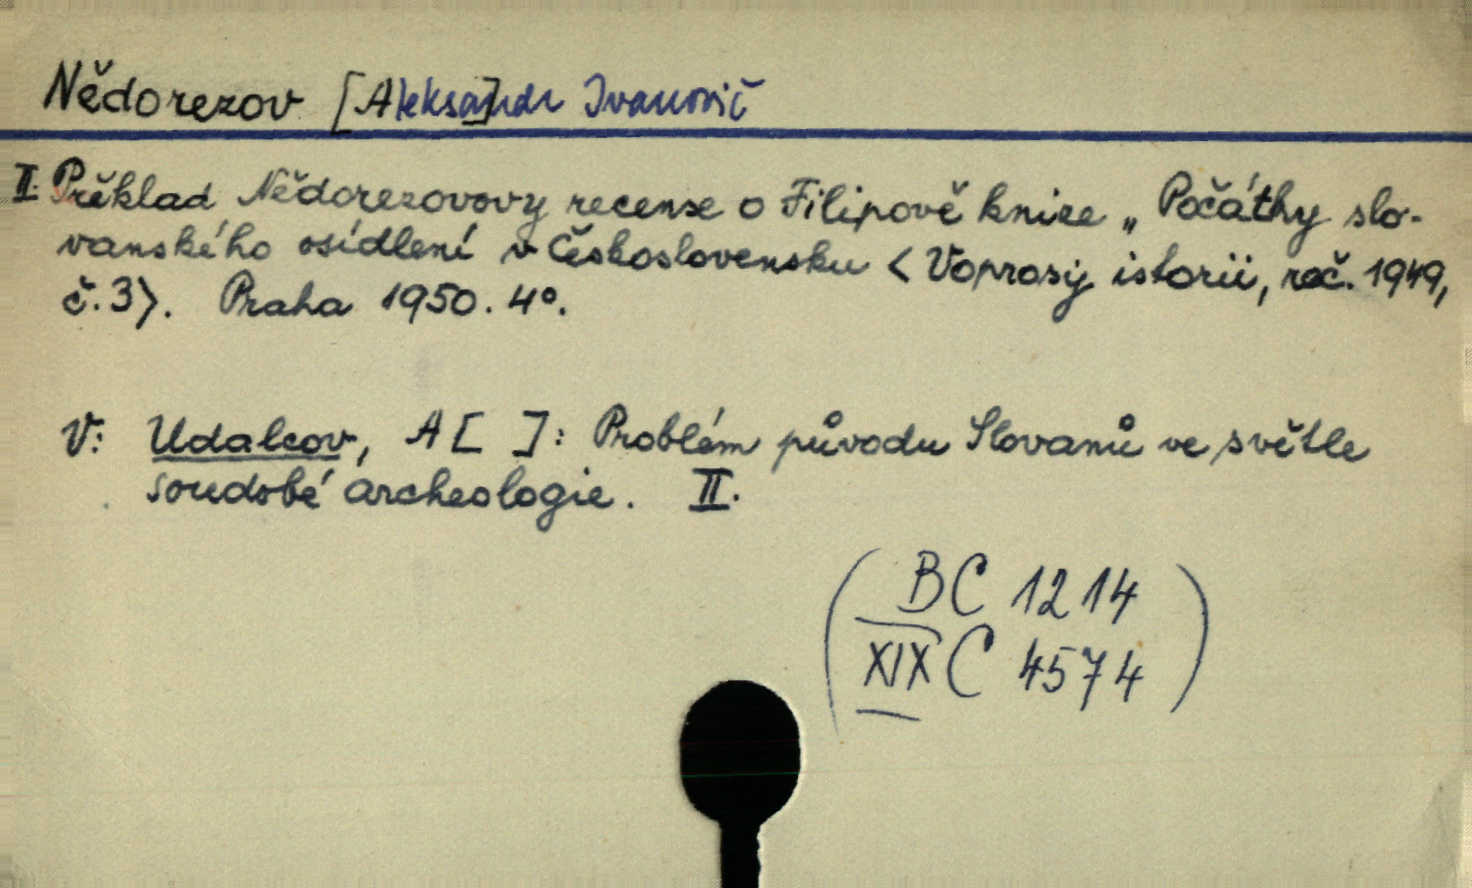 Nědorezov [Aleksandr] Ivanovič
II. Překlad Nědorezovovy recense o Filipově knize „Počátky slo-
vanského osídlení v Československu <Voprosy istorii, roč. 1949,
č. 3>. Praha 1950. 4°.
V: Udalcov, A[ ]: Problém původu Slovanů ve světle
soudobé archeologie. II.
(BC 1214
XIX C 4574)